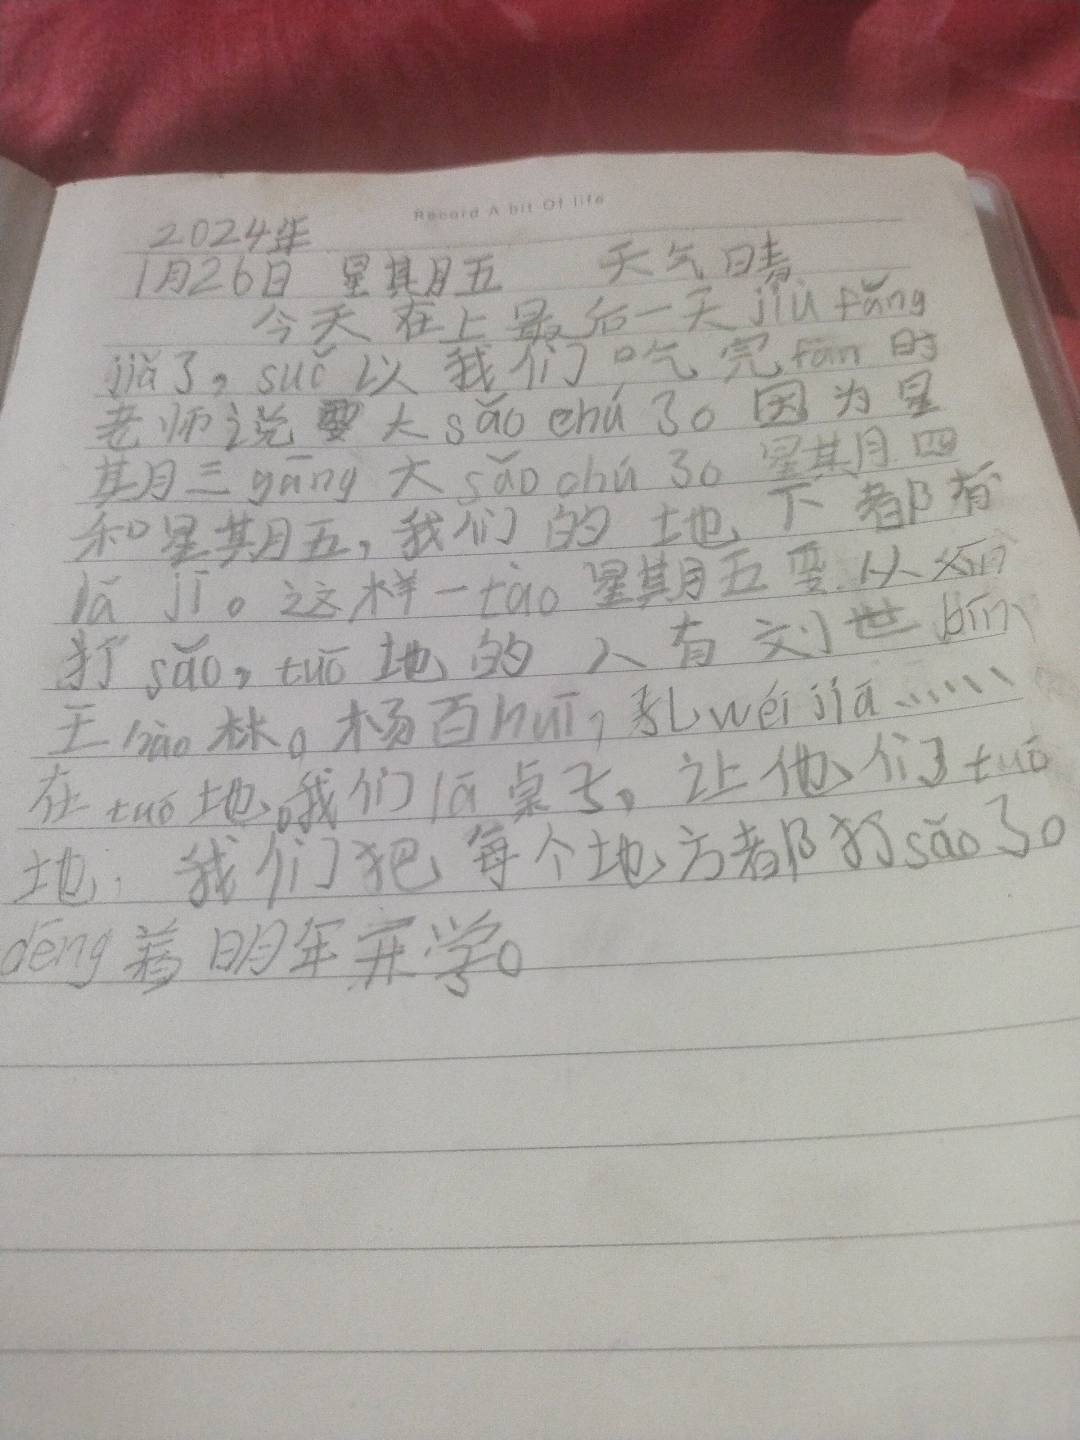 Record A bit Of life
2024年
1月26日 星期五 天气晴
今天在上最后一天jiù fǎng
jiǎ了，suǒ以我们吃完fàn时
老师说要大sǎo chú了。因为星
期三gāng大sǎo chú了。星期四
和星期五，我们的地下都有
lā jī。这样一tào星期五要从
打sǎo，tuō地的人有刘世bīn
王hào林。杨百huī，孔wéi jiā……
在tuō地。我们lā桌子。让他们了tuō
地。我们把每个地方都打sǎo了。
děng着明年开学。